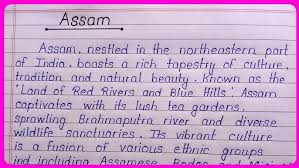 Assam
Assam, nestled in the northeastern part
of India, boasts a rich tapestry of culture,
tradition and natural beauty. Known as the
'Land of Red Rivers and Blue Hills', Assam
captivates with its lush tea gardens,
sprawling Brahmaputra river and diverse
wildlife sanctuaries. Its vibrant culture
is a fusion of various ethnic groups
including Assamese, Bodos and